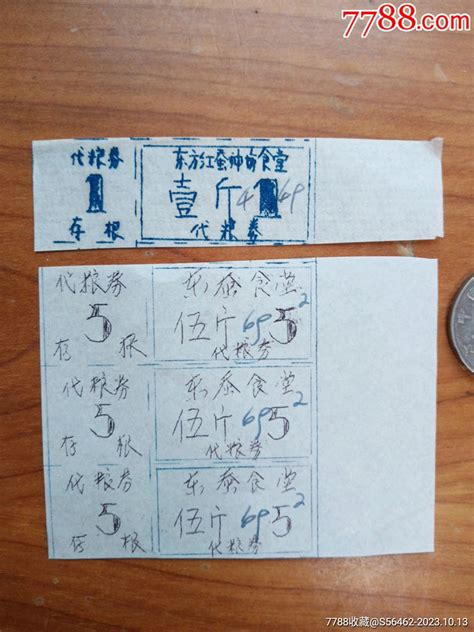 7788.com
代粮券
1
存根
东方红蚕种场食堂
壹斤 1
代粮券
代粮券
5
存根
东蚕食堂
伍斤 69 5 2
代粮券
代粮券
5
存根
东蚕食堂
伍斤 69 5 2
代粮券
代粮券
5
存根
东蚕食堂
伍斤 69 5 2
代粮券
7788收藏@S56462-2023.10.13